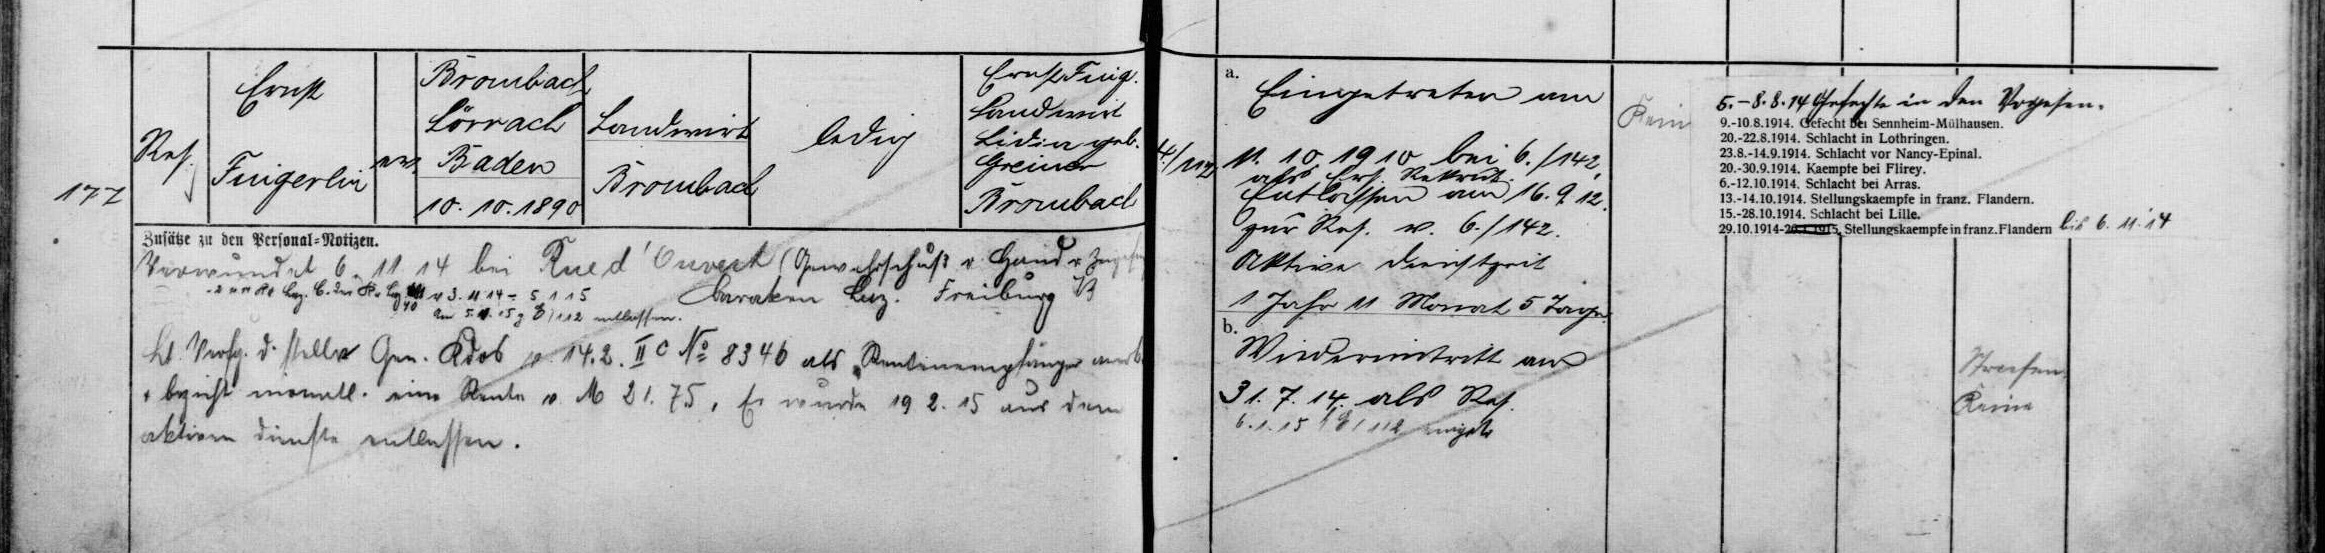 177
Res.
Ernst
Fingerlin
ev.
Brombach
Lörrach
Baden
10. 10. 1890
Landwirt
Brombach
ledig
Ernst Fing.
Landwirt
Lidia geb.
Greiner
Brombach
Zusätze zu den Personal-Notizen.
Verwundet 6. 11 14 bei Rue d'Ouvert (Gewehrschuß r. Hand
3. 11 14 – 5 1 15 Baraken Laz. Freiburg i/B
5. 1. 15 z E/112 entlassen.
Lt. Verfg. d. stellv Gen. Kdos v. 14. 2. II c No 8346 als Rentenempfänger
bezieht monatl. eine Rente v. M 21.75. Er wurde 19 2. 15 aus dem
aktiven Dienste entlassen.
4./112
a.
Eingetreten am
11. 10 1910 bei 6./142
als Ers. Rekrut.
Entlassen am 16. 9 12.
zur Res. v. 6./142.
Aktive Dienstzeit
1 Jahr 11 Monat 5 Tage.
b.
Wiedereintritt am
31. 7. 14. als Res.
6. 1. 15 E/112
Kein
5.–8. 8. 14 Gefechte in den Vogesen.
9.-10.8.1914. Gefecht bei Sennheim-Mülhausen.
20.-22.8.1914. Schlacht in Lothringen.
23.8.-14.9.1914. Schlacht vor Nancy-Epinal.
20.-30.9.1914. Kaempfe bei Flirey.
6.-12.10.1914. Schlacht bei Arras.
13.-14.10.1914. Stellungskaempfe in franz. Flandern.
15.-28.10.1914. Schlacht bei Lille.
29.10.1914-20.1.1915. Stellungskaempfe in franz. Flandern bis 6. 11. 14
Strafen.
Keine